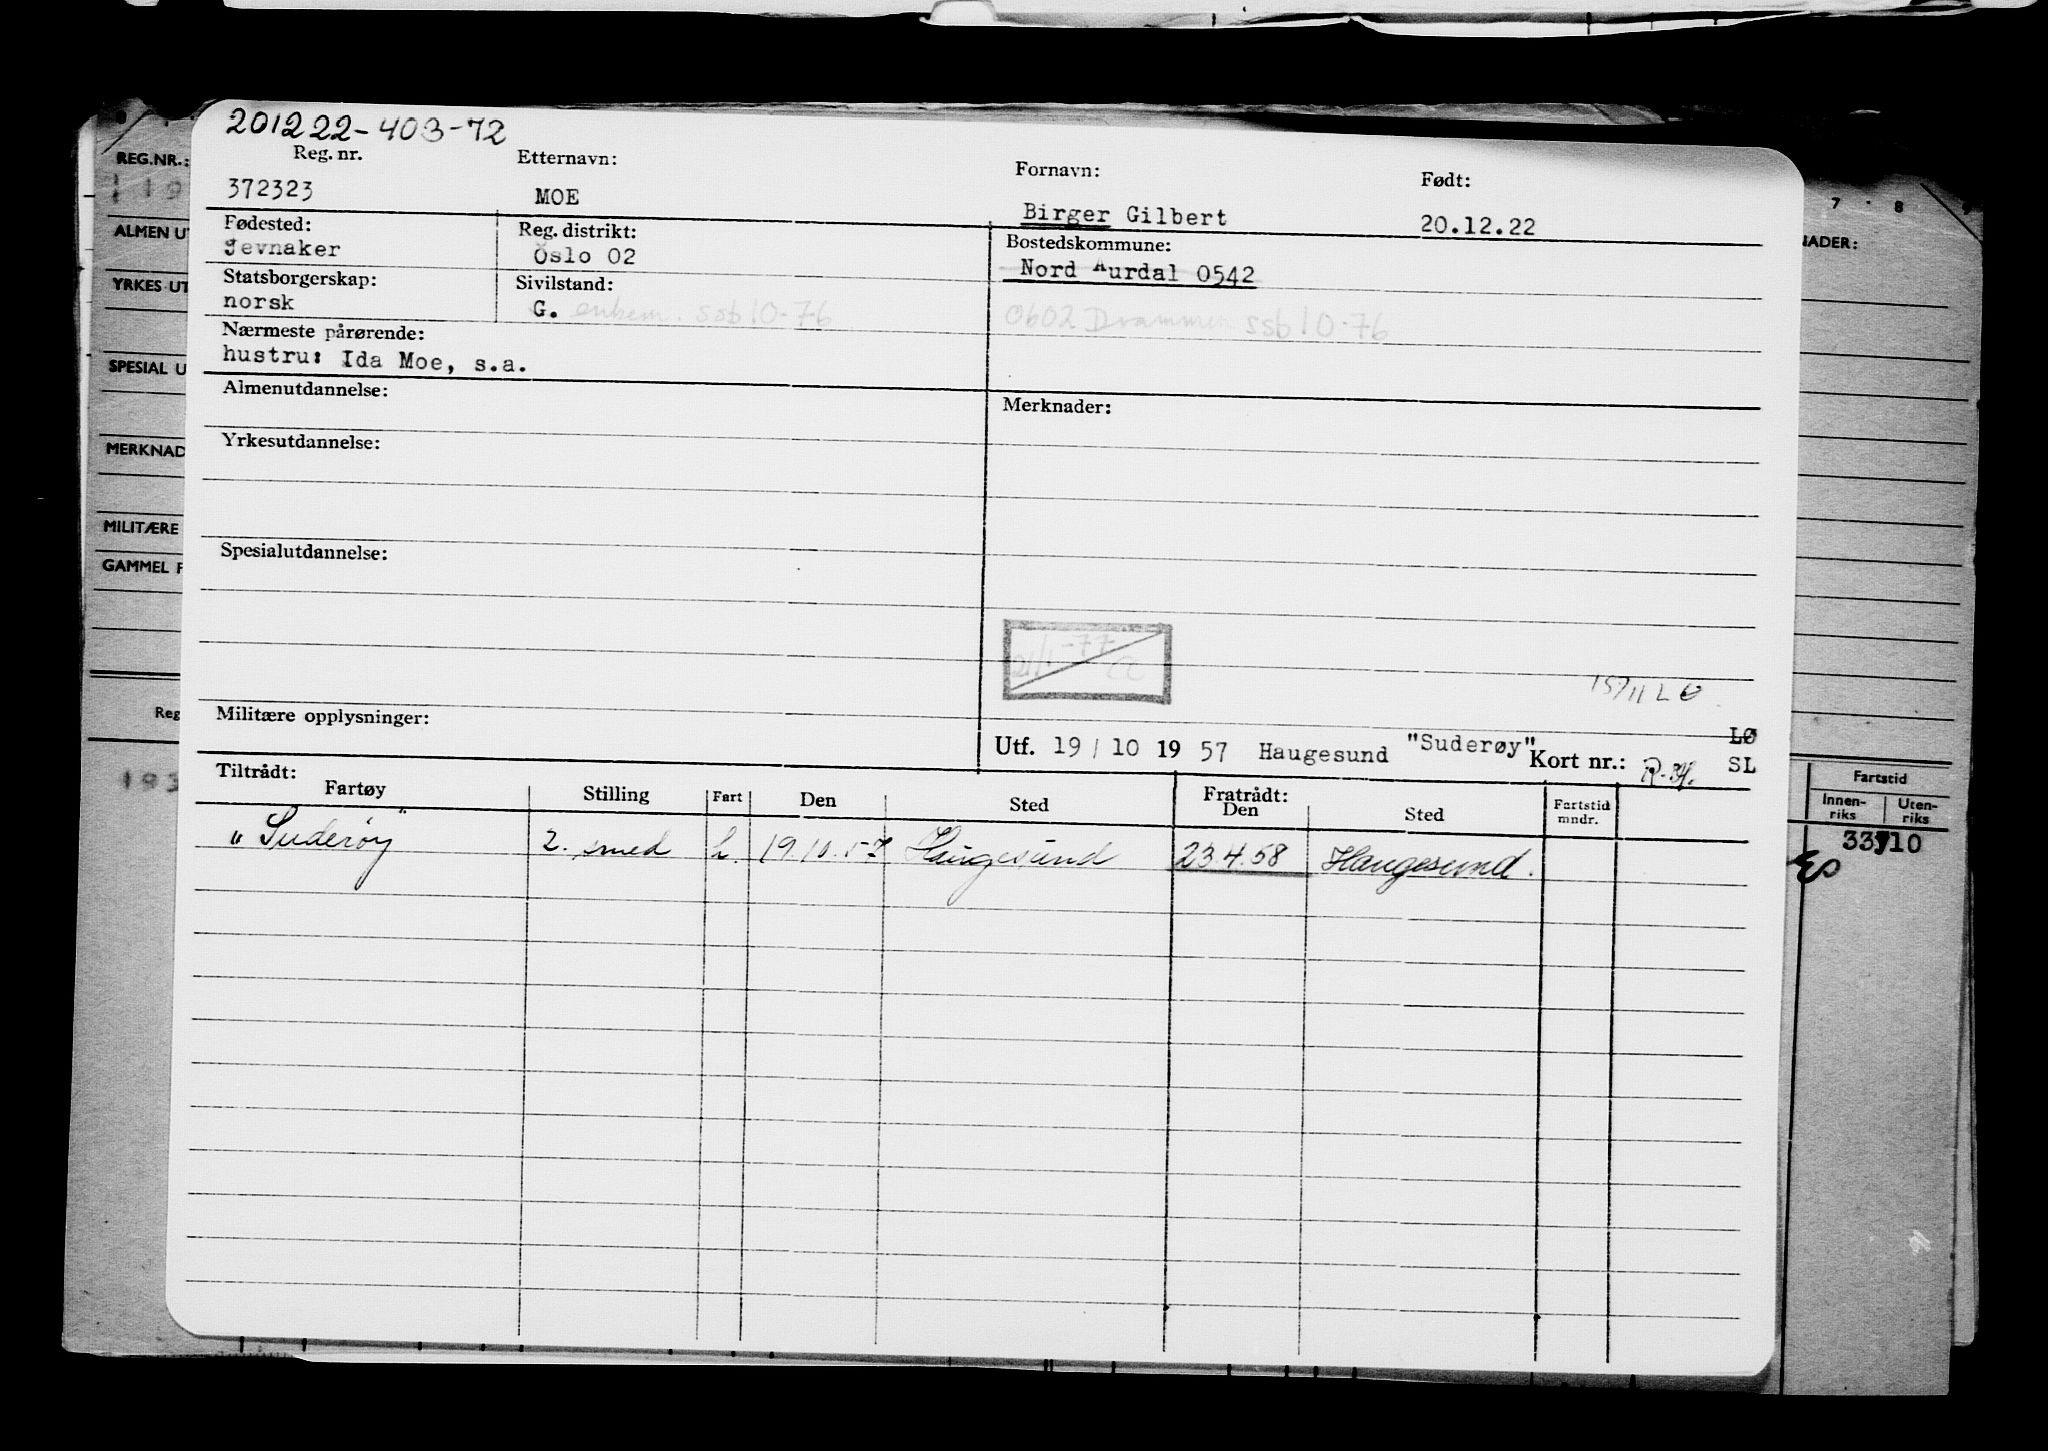 201222-403-72
Reg. nr. Etternavn: Fornavn: Født:
372323 MOE Birger Gilbert 20.12.22
Fødested: Reg. distrikt: Bostedskommune:
Jevnaker Oslo 02 Nord Aurdal 0542
Statsborgerskap: Sivilstand:
norsk G. enkem. ssb 10-76 0602 Drammen ssb 10-76
Nærmeste pårørende:
hustru: Ida Moe, s.a.
Almenutdannelse: Merknader:
Yrkesutdannelse:
Spesialutdannelse:
21/1-77
15/11 LØ
Militære opplysninger: LØ
Utf. 19/10 1957 Haugesund "Suderøy" Kort nr.: SL
Tiltrådt: Fratrådt:
Fartøy Stilling Fart Den Sted Den Sted Fartstid mndr.
"Suderøy" 2. smed h. 19.10.57 Haugesund 23.4.58 Haugesund.
REG.NR.:
19
ALMEN UT
YRKES UT
SPESIAL U
MERKNAD
MILITÆRE
GAMMEL F
Reg
193
7 8 9
NADER:
Fartstid
Innen-riks Uten-riks